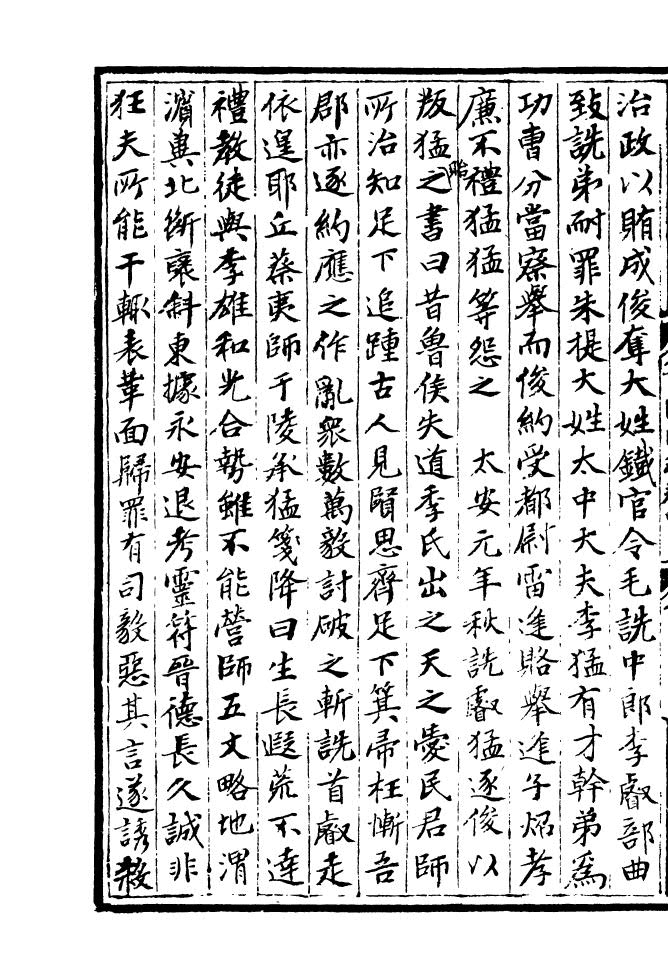 治政以賄成俊奪大姓鐵官令毛詵中郎李叡部曲
致詵弟耐罪朱提大姓太中大夫李猛有才幹弟為
功曹分當察舉而俊約受都尉雷逢賂舉逢子炤孝
廉不禮猛猛等怨之　太安元年秋詵叡猛逐俊以
叛猛貽之書曰昔魯侯失道季氏出之天之愛民君師
所治知足下追踵古人見賢思齊足下箕帚枉慚吾
郡亦逐約應之作亂衆數萬毅討破之斬詵首叡走
依遑耶丘蔡夷師于陵承猛箋降曰生長遐荒不達
禮教徒與李雄和光合勢雖不能營師五丈略地渭
濱冀北斷襃斜東據永安退考靈符晉德長久誠非
狂夫所能干輒表革面歸罪有司毅惡其言遂誘殺